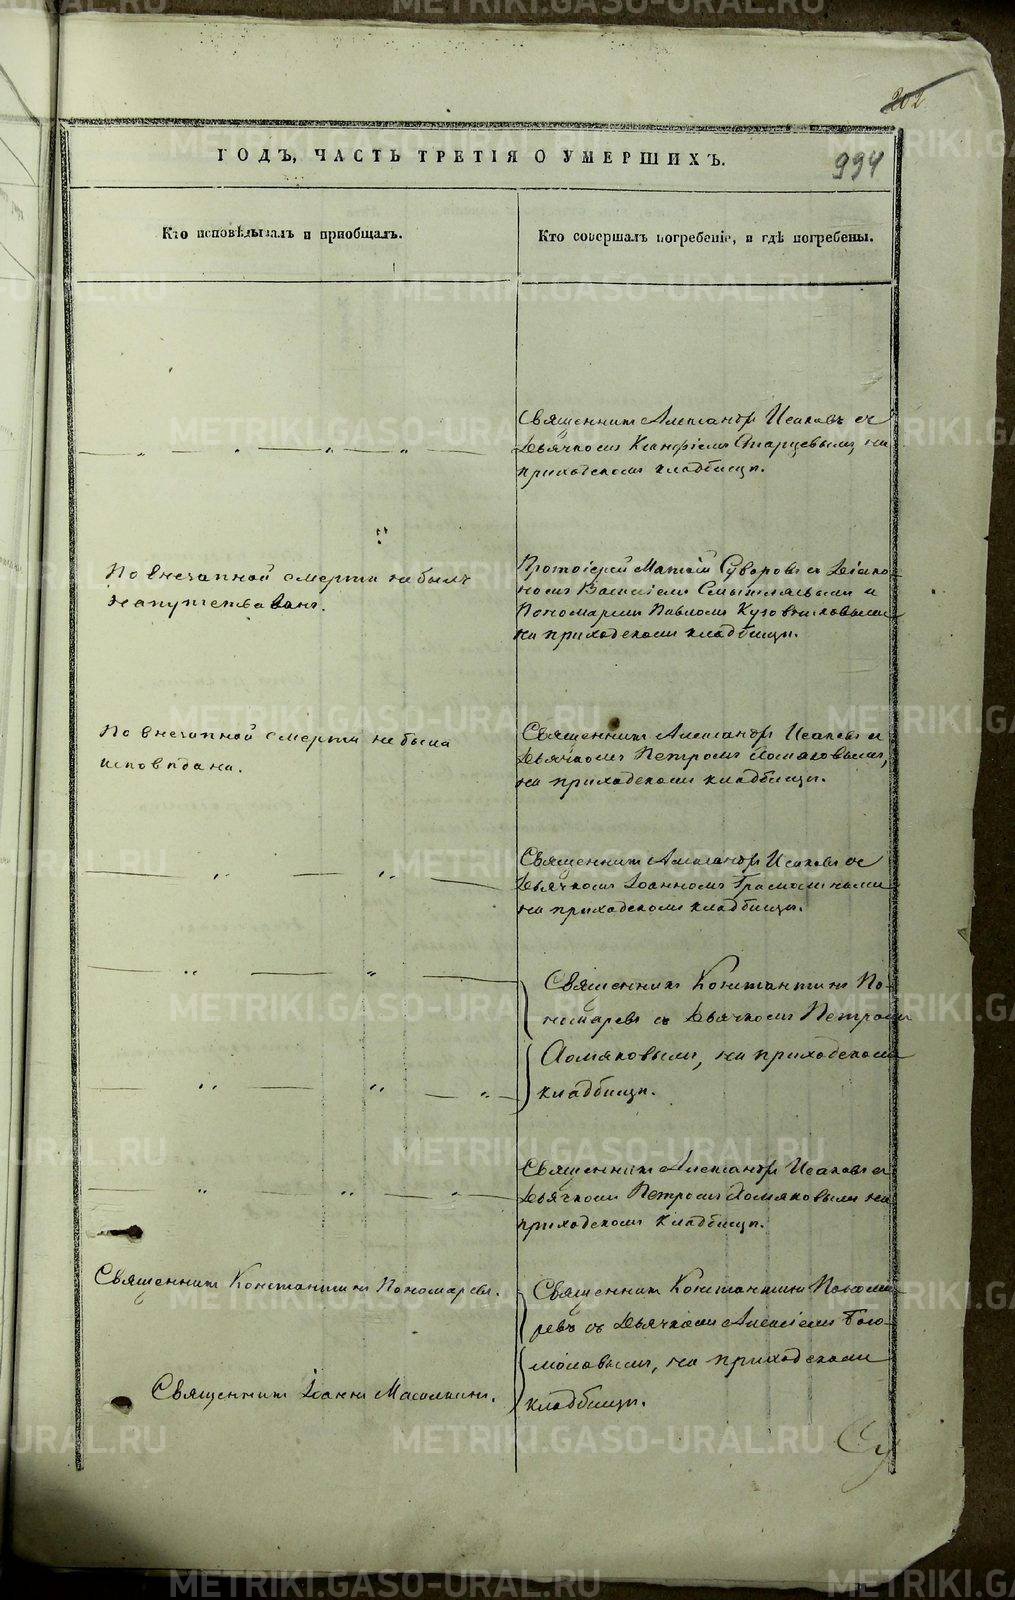 202
994
ГОДЪ, ЧАСТЬ ТРЕТІЯ О УМЕРШИХЪ.
Кто исповѣдывалъ и пріобщалъ.
Кто совершалъ погребеніе, и гдѣ погребены.
Священникъ Александръ Исаковъ съ
Дьячкомъ Старцевымъ на
приходскомъ кладбищѣ.
По внезапной смерти не былъ
напутствованъ.
Протоіерей Матѳій Суворовъ съ Діако-
номъ Василіемъ Смышляевымъ и
Пономаремъ Павломъ Кузовниковымъ
на приходскомъ кладбищѣ.
По внезапной смерти не была
исповѣдана.
Священникъ Александръ Исаковъ съ
Дьячкомъ Петромъ Хомяковымъ,
на приходскомъ кладбищѣ.
Священникъ Александръ Исаковъ съ
Дьячкомъ Іоанномъ
на приходскомъ кладбищѣ.
Священникъ Константинъ По-
номаревъ съ Дьячкомъ Петромъ
Хомяковымъ, на приходскомъ
кладбищѣ.
Священникъ Александръ Исаковъ съ
Дьячкомъ Петромъ Хомяковымъ на
приходскомъ кладбищѣ.
Священникъ Константинъ Пономаревъ.
Священникъ Константинъ Понома-
ревъ съ Дьячкомъ Алексіемъ Бого-
моловымъ, на приходскомъ
кладбищѣ.
Священникъ Іоаннъ
METRIKI.GASO-URAL.RU